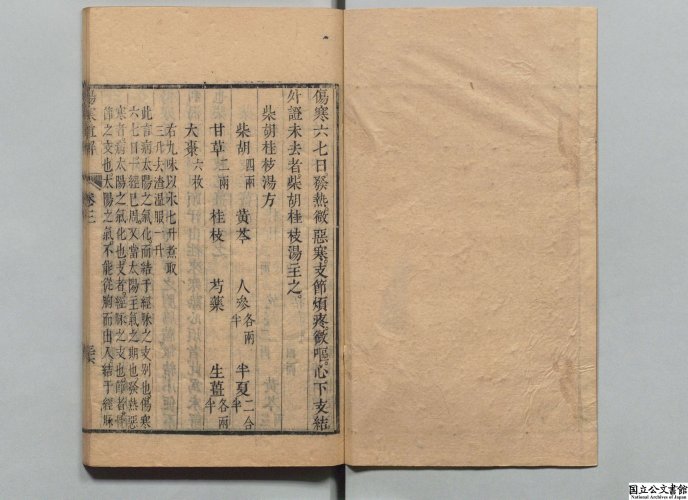 傷寒六七日發熱微惡寒支節煩疼微嘔心下支結
外證未去者柴胡桂枝湯主之
柴胡桂枝湯方
柴胡四兩 黃芩 人參各兩半 半夏二合半
甘草二兩 桂枝 芍藥 生薑各兩半
大棗六枚
右九味以水七升煮取
三升去渣溫服一升
此言病太陽之氣化而結于經脉之支別也傷寒
六七日一經已周又當太陽主氣之期也發熱惡
寒者病太陽之氣化也支者經脉之支也節者骨
節之支也太陽之氣不能從胸而出入結于經脉
傷寒直解 卷三
国立公文書館
National Archives of Japan